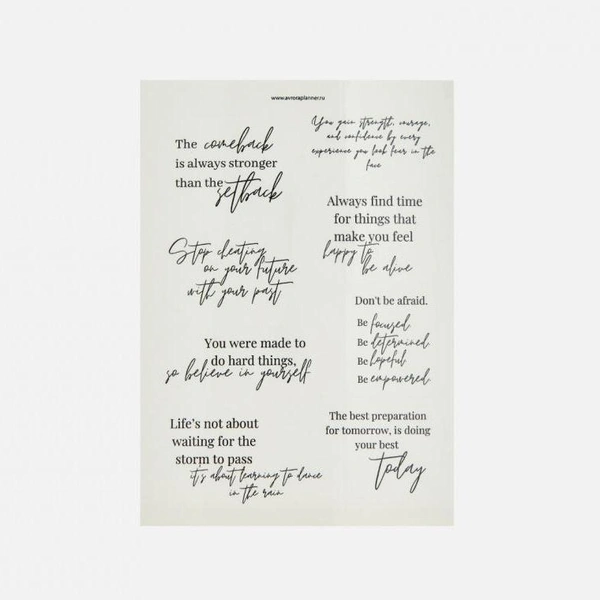 www.avroraplanner.ru
The comeback
is always stronger
than the setback
You gain strength, courage,
and confidence by every
experience you look fear in the
face
Always find time
for things that
make you feel
happy to
be alive
Stop cheating
on your future
with your past
Don't be afraid.
Be focused.
Be determined.
Be hopeful.
Be empowered.
You were made to
do hard things,
so believe in yourself
Life's not about
waiting for the
storm to pass
it's about learning to dance
in the rain
The best preparation
for tomorrow, is doing
your best
today